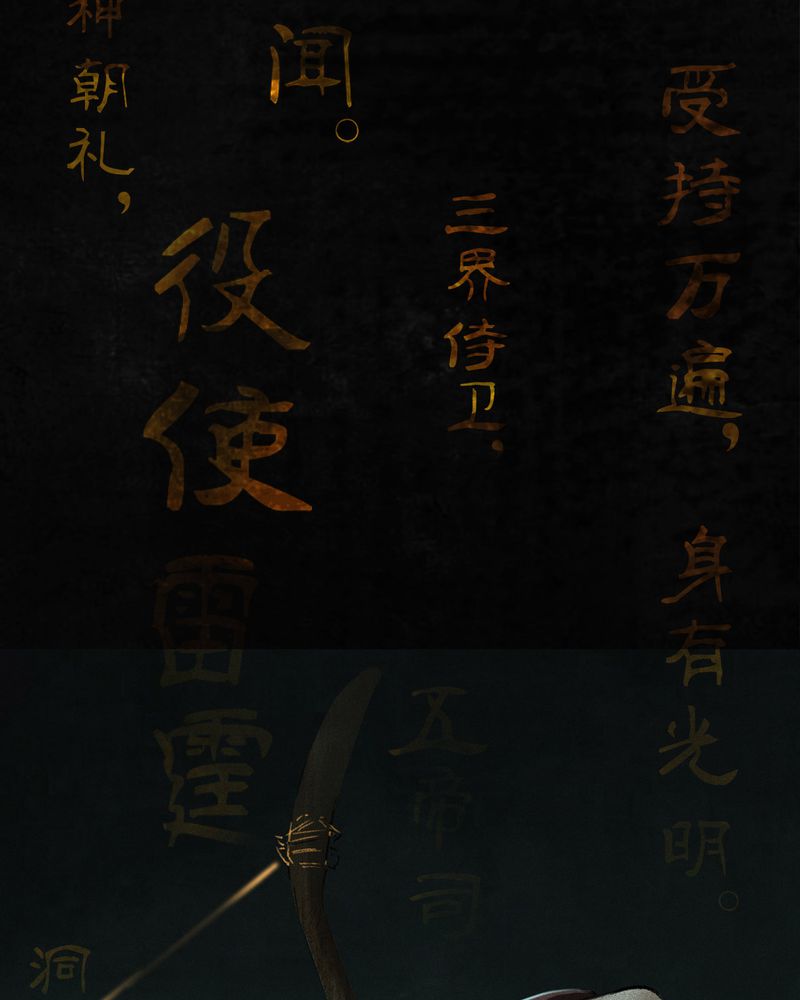 受持万遍,
身有光明。
三界侍卫,
五帝司
闻。
神朝礼,
役使雷霆
洞